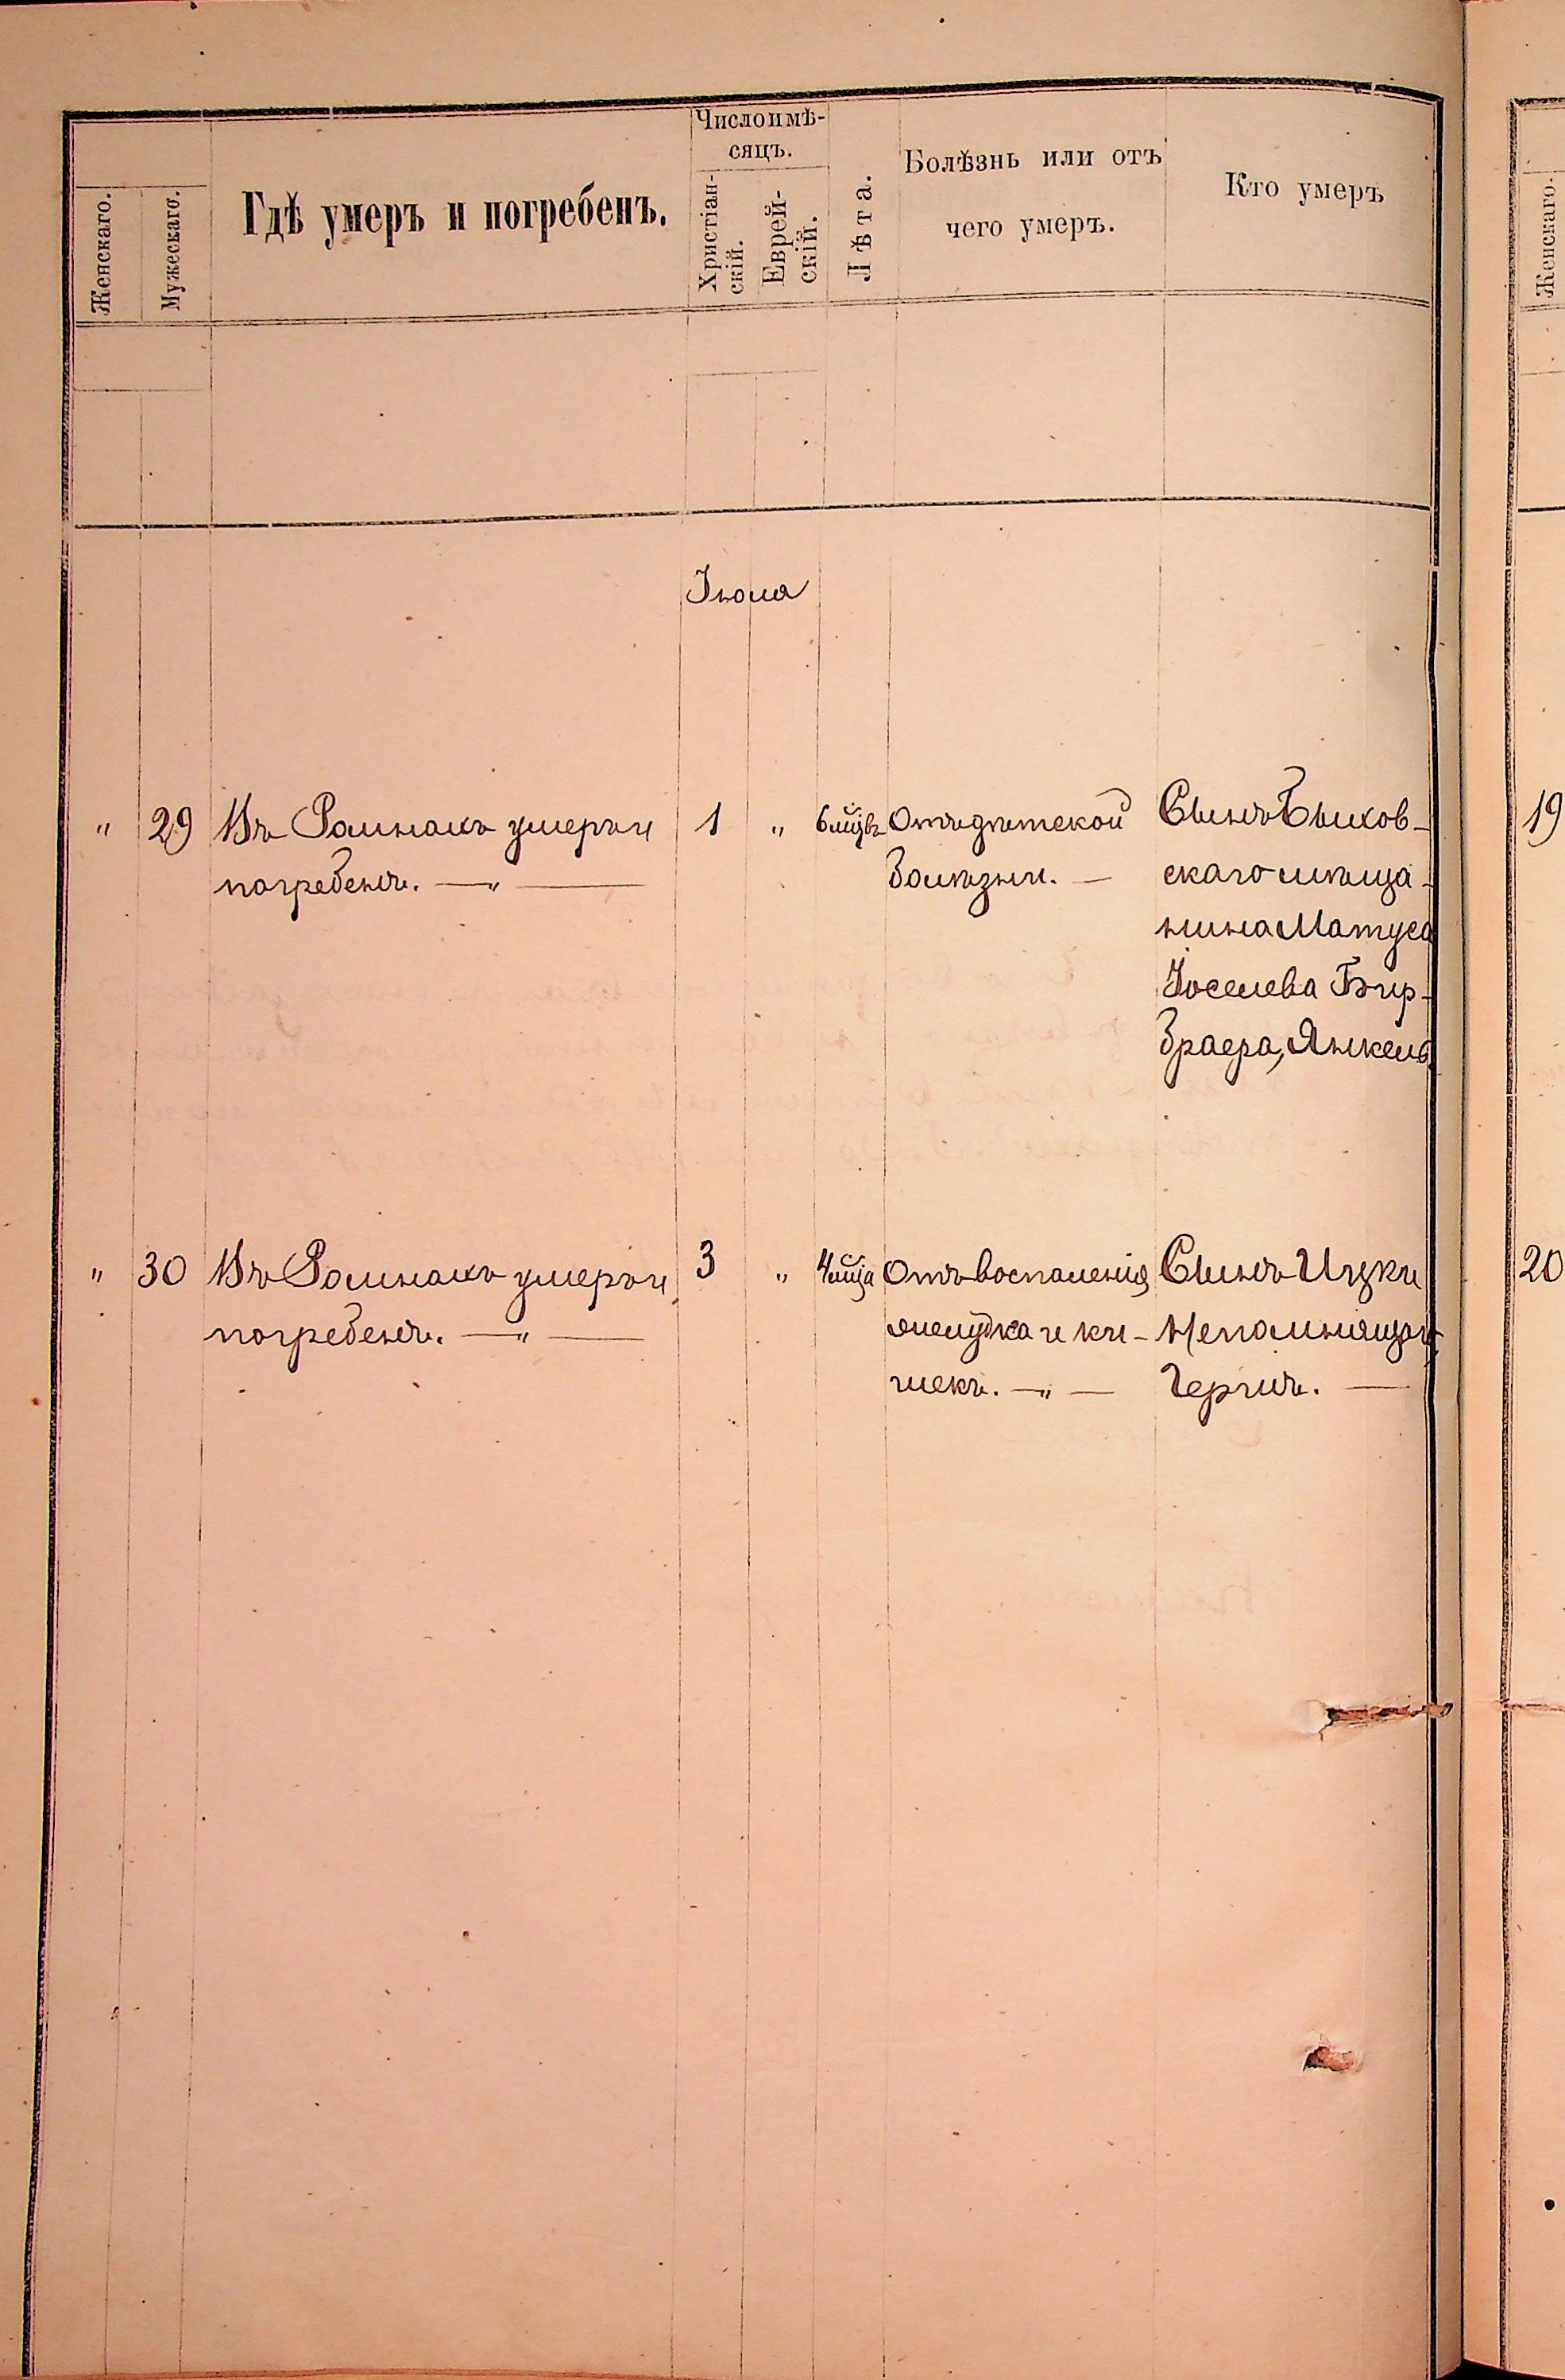 Женскаго.
Мужескаго.
Гдѣ умеръ и погребенъ.
Число и мѣ-
сяцъ.
Христіан-
скій.
Еврей-
скій.
Лѣта.
Болѣзнь или отъ
чего умеръ.
Кто умеръ
Женскаго.
Іюля
" 29 Въ Ромнахъ умеръ и
погребенъ. — " —
1 "
6 мцвъ
Отъ дѣтской
болѣзни. —
Сынъ Быхов-
скаго мѣща-
нина Матуса
Іоселева Бир-
браера, Янкель
19
" 30 Въ Ромнахъ умеръ и
погребенъ. — " —
3 "
4 мца
Отъ воспаленія
желудка и ки-
шекъ. — " —
Сынъ Ицки
Непомнящаго
Гершъ. —
20